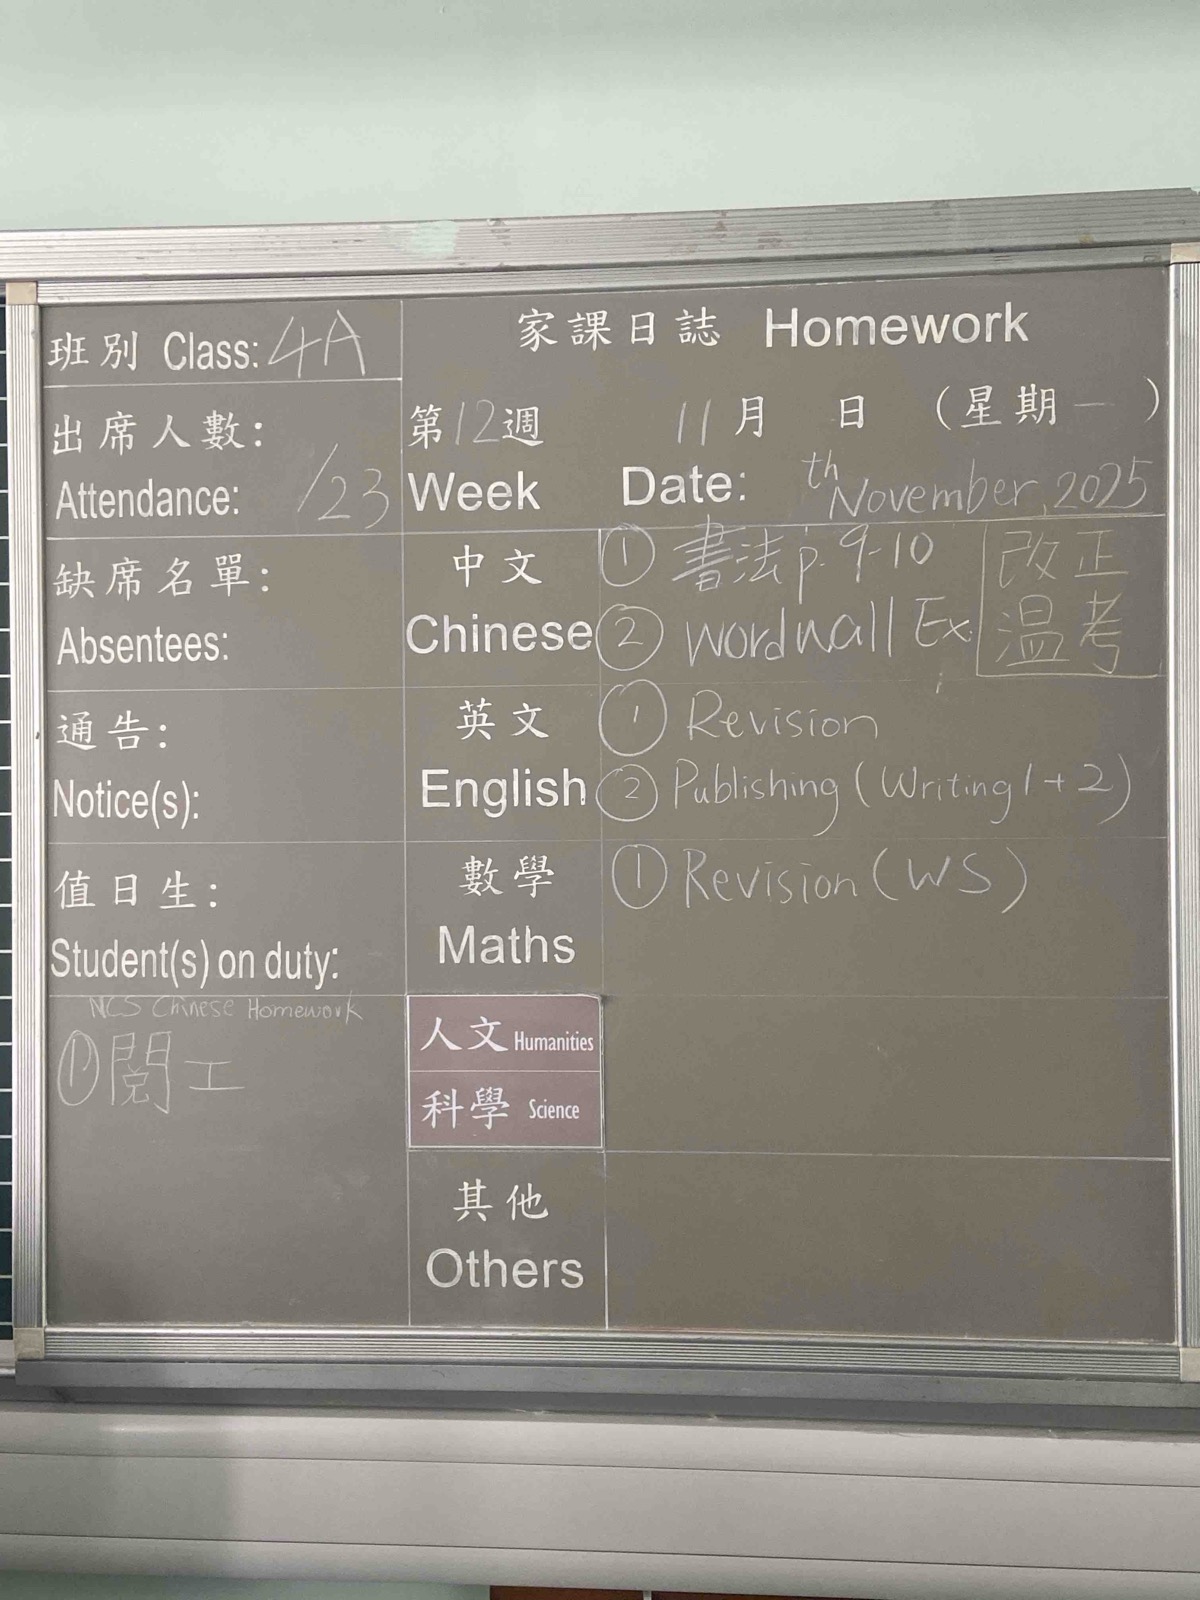 班別 Class: 4A
出席人數:
Attendance: /23
缺席名單:
Absentees:
通告:
Notice(s):
值日生:
Student(s) on duty:
NCS Chinese Homework
① 閱工
家課日誌 Homework
第12週 11月 日 (星期一)
Week Date: th November, 2025
中文
Chinese
① 書法 p. 9-10
② wordwall Ex
改正
溫考
英文
English
① Revision
② Publishing (Writing 1 + 2)
數學
Maths
① Revision (WS)
人文 Humanities
科學 Science
其他
Others